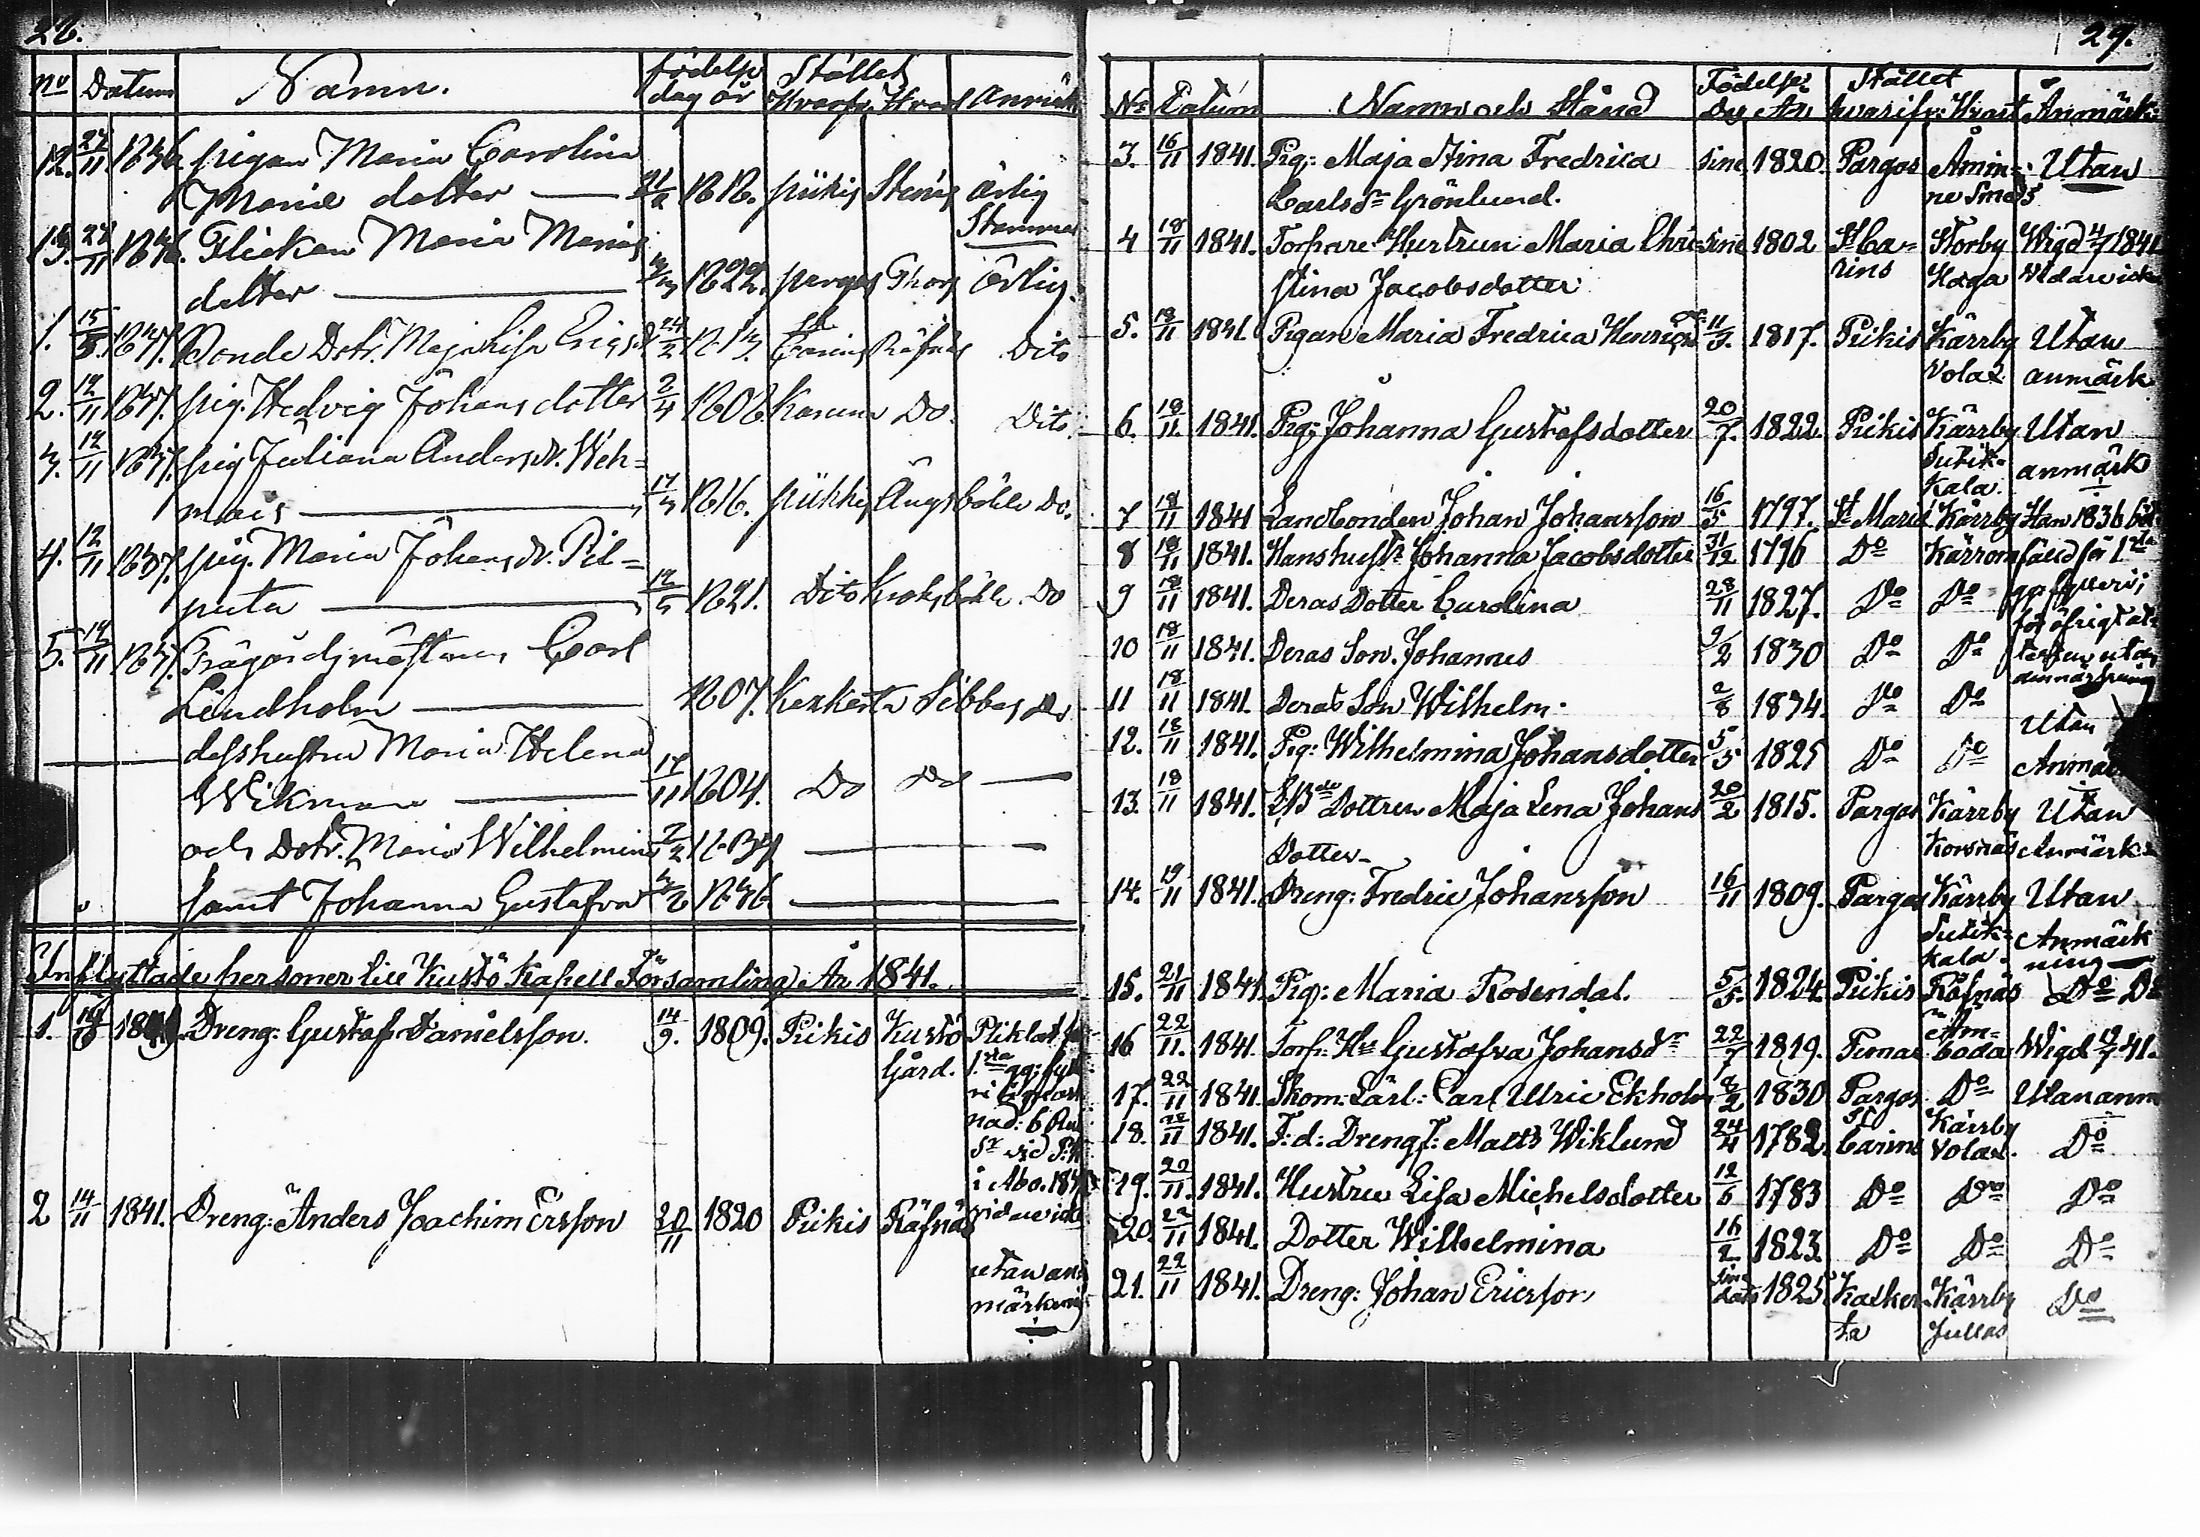 26.
no Datum Namn. födelse dag år Stället Hvarfr. Hvart Anmärk
12. 27/11 1836. pigan Maria Carolina
Marie dotter — 1818. pükis Stenis ärlig
Stammar
13. 27/11 1836. Flickan Maria Marias
dotter — 1822. pargas Ärlig.
1. 15/3 1837. Bonde Dotr. Maja Lisa Erigsd. 24/2 St Carins Räfnäs Dito
2. 12/11 1837. pig. Hedvig Johans dotter 2/4 1808. Karuna Do. Dito
3. 12/11 1837. pig Juliana Andersdr. Weh=
mais — 17/3 1816. pükkis Ängsböhle Do.
4. 12/11 1837. pig. Maria Johansdr. Pil=
puta — 12/5 1821. Dito Kroksböhle Do
5. 12/11 1837. Trägårdsmästaren Carl
Lindholm — 1807. Korkerta Sibbas Do
desshustru Maria Helena
Wikman — 17/11 1804. Do Do —
och Dotr. Maria Wilhelmina 2/2 1834 —
samt Johanna Gustafva 1836. —
Inflyttade personer till Kustö Kapell Församling År 1841.
1. Dreng: Gustaf Danielsson. 14/9. 1809. Pikis Kustö Pliktat för
Gård. 1sta gg: fylle
ri
nad: 6 Rub
Sr vid
i Åbo. 184
2 14/11 1841. Dreng: Anders Joachim Ersson 20/11 1820 Pikis Räfnäs vidare icke
utan an
märkning
27.
No Datum Namn och Stånd Födelse Dag År Stället hvarifr: Hvart Anmärk:
3. 16/11 1841. Pig: Maja Stina Fredrica sine 1820. Pargas Åmin= Utan
Carlsdr Grönlund. ne Smeds
4 18/11 1841. Torpare Hustrun Maria Chri= sine 1802 St Ca= Storby Wigd 4/7 1841
stina Jacobsdotter rins Haga vidare icke
5. 18/11 1841 Pigan Maria Fredrica Henricsdr 11/3. 1817. Pikis Kärrby Utan
Volax anmärk
6. 18/11. 1841. Pig: Johanna Gustafsdotter 20/7. 1822. Pikis Kärrby Utan
Sutik= anmärk
kala.
7 18/11 1841 Landbonden Johan Johansson 16/5 1797. St Marie Kärrby Han 1836 böt
8 18/11 1841. Hanshustr Johanna Jacobsdotter 31/12 1796 Do Kärrom fälld för 1sta
9 18/11 1841. Deras Dotter Carolina 28/11 1827. Do Do gg fylleri;
för öfrigt at
10 18/11 1841. Deras Son. Johannes 9/2 1830 Do Do testen utan
anmärkning
11 18/11 1841. Deras Son Wilhelm. 2/8 1834. Do Do
Utan
12. 18/11 1841. Pig: Wilhelmina Johansdotter 5/5 1825 Do Do Anmärk
13. 18/11 1841. Dottren Maja Lena Johans 20/2 1815. Pargas Kärrby Utan
Dotter Korsnäs Anmärk
14. 19/11 1841. Dreng: Fredric Johansson 16/11 1809. Pargas Kärrby Utan
Sutik= Anmärk
kala. ning
15. 21/11 1841 Pig: Maria Rosendal. 5/5. 1824. Pikis Räfnäs Do Do
16 22/11. 1841. Torp: Hu Gustafva Johansdr 22/7 1819. Pemar Åm=boda Wigd 41.
17. 22/11 1841 Skom: Lärl: Carl Ulric Ekholm 8/2 1830 Pargas Do Utan anm
18. 22/11 1841. F: d: Drengf: Matts Wiklund 24/4 1782. St Carins Kärrby Volax. Do
19. 22/11. 1841. Hustru Lisa Michelsdotter 12/6 1783 Do Do Do
20. 22/11 1841. Dotter Wilhelmina 16/2. 1823. Do Do Do
21. 22/11 1841. Dreng: Johan Ericsson sine dato 1825 Kasker Kärrby Do
ta Jullas